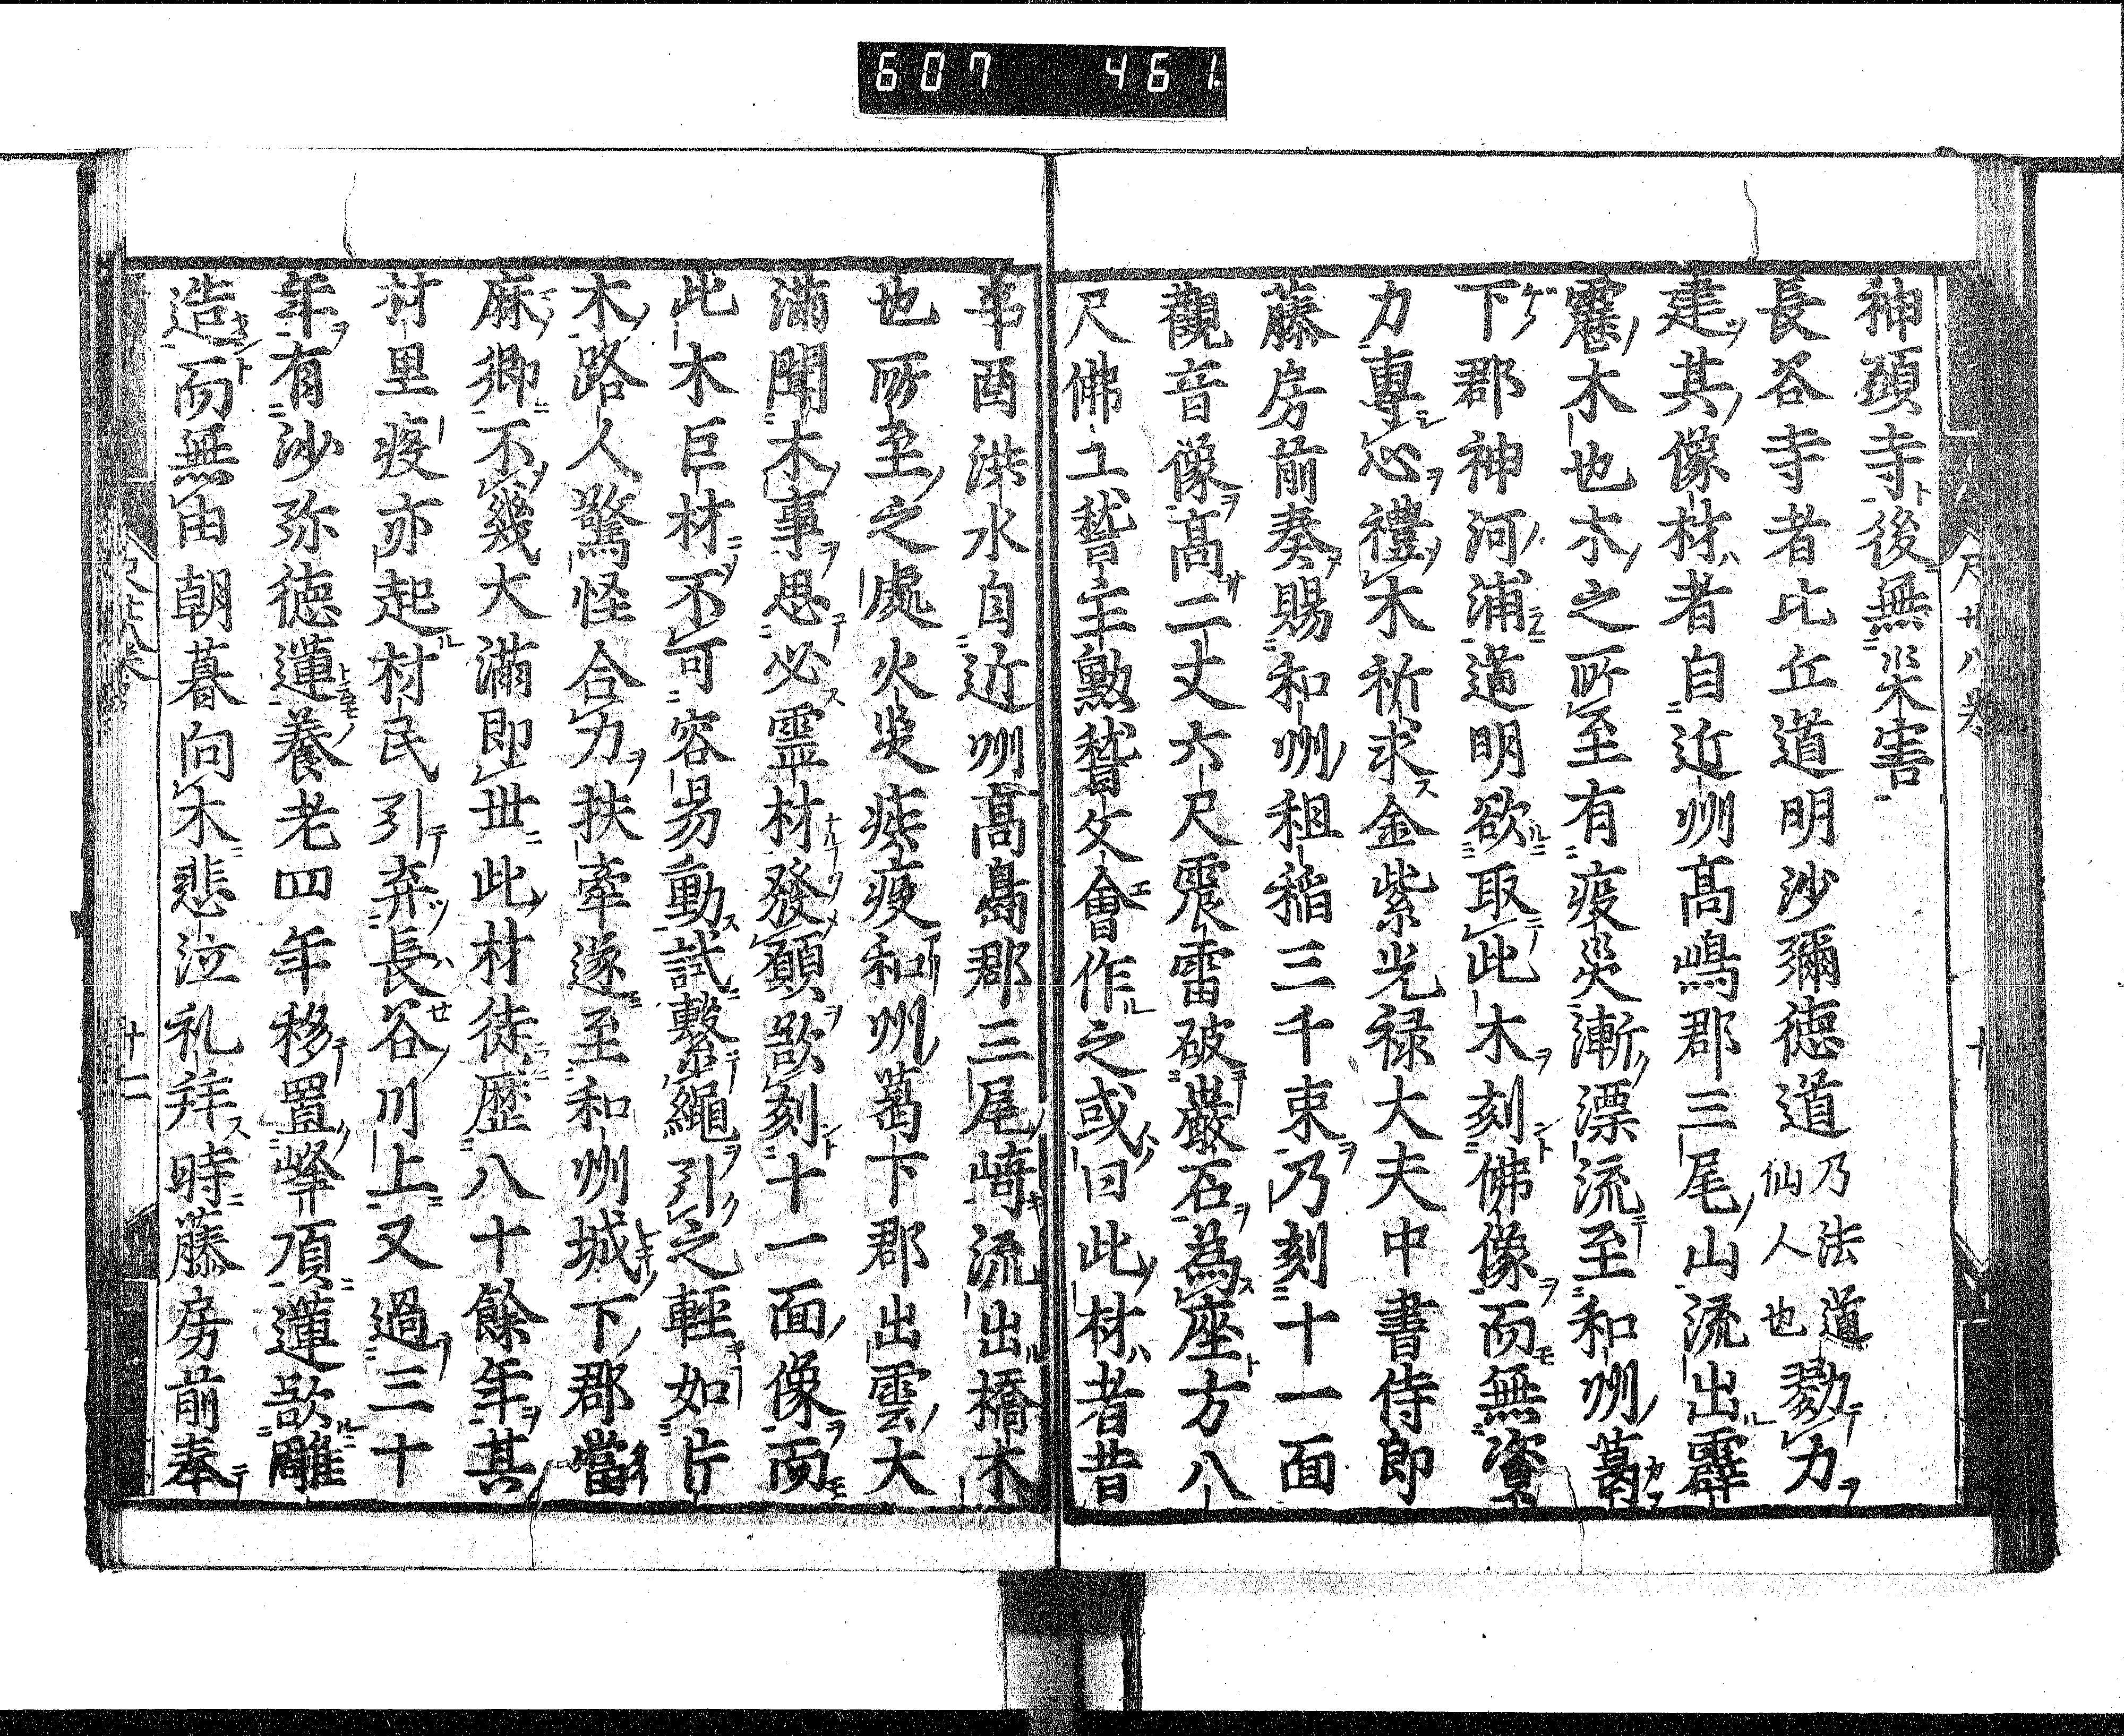 607 461
神願寺後無災害
長谷寺者比丘道明沙彌徳道乃法道仙人也勠力
建其像材者自近州髙嶋郡三尾山流出霹
靂木也木之所至有疫災漸漂流至和州葛
下郡神河浦道明欲取此木刻佛像而無資
力專心禮木祈求金紫光禄大夫中書侍郎
藤房前奏賜和州租稲三千束乃刻十一面
觀音像髙二丈六尺震雷破巖石為座方八
尺佛工稽主勲稽文會作之或曰此材者昔
辛酉洪水自近州髙島郡三尾﨑流出橋木
也所至之處火災疾疫和州葛下郡出雲大
滿聞木事思必霊材發願欲刻十一面像而
此木巨材不可容易動試繫繩引之輕如片
木路人驚怪合力扶牽遂至和州城下郡當
麻郷不幾大滿即世此材徒歴八十餘年其
村里疫亦起村民引弃長谷川上又過三十
年有沙弥徳道養老四年移置峰頂道欲雕
造而無由朝暮向木悲泣礼拜時藤房前奉
尺廿八巻
十二